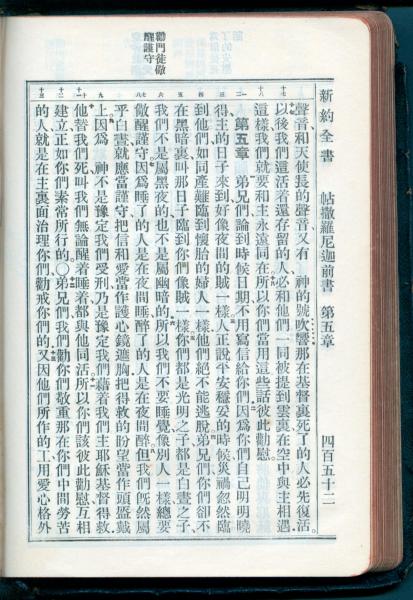 新約全書 帖撒羅尼迦前書 第五章 四百五十二
勸門徒儆
醒謹守
聲音和天使長的聲音又有 神的號吹響那在基督裏死了的人必先復活
以後我們這活着還存留的人必和他們一同被提到雲裏在空中與主相遇
這樣我們就要和主永遠同在所以你們當用這些話彼此勸慰
第五章 弟兄們論到時候日期不用寫信給你們因爲你們自己明明曉
得主的日子來到好像夜間的賊一樣人正說平安穩妥的時候災禍忽然臨
到他們如同產難臨到懷胎的婦人一樣他們絕不能逃脫弟兄們你們卻不
在黑暗裏叫那日子臨到你們像賊一樣你們都是光明之子都是白晝之子
我們不是屬黑夜的也不是屬幽暗的所以我們不要睡覺像別人一樣總要
儆醒謹守因爲睡了的人是在夜間睡醉了的人是在夜間醉但我們旣然屬
乎白晝就應當謹守把信和愛當作護心鏡遮胸把得救的盼望當作頭盔戴
上因爲 神不是豫定我們受刑乃是豫定我們藉着我們主耶穌基督得救
他替我們死叫我們無論醒着睡着都與他同活所以你們該彼此勸慰互相
建立正如你們素常所行的〇弟兄們我們勸你們敬重那在你們中間勞苦
的人就是在主裏面治理你們勸戒你們的又因他們所作的工用愛心格外